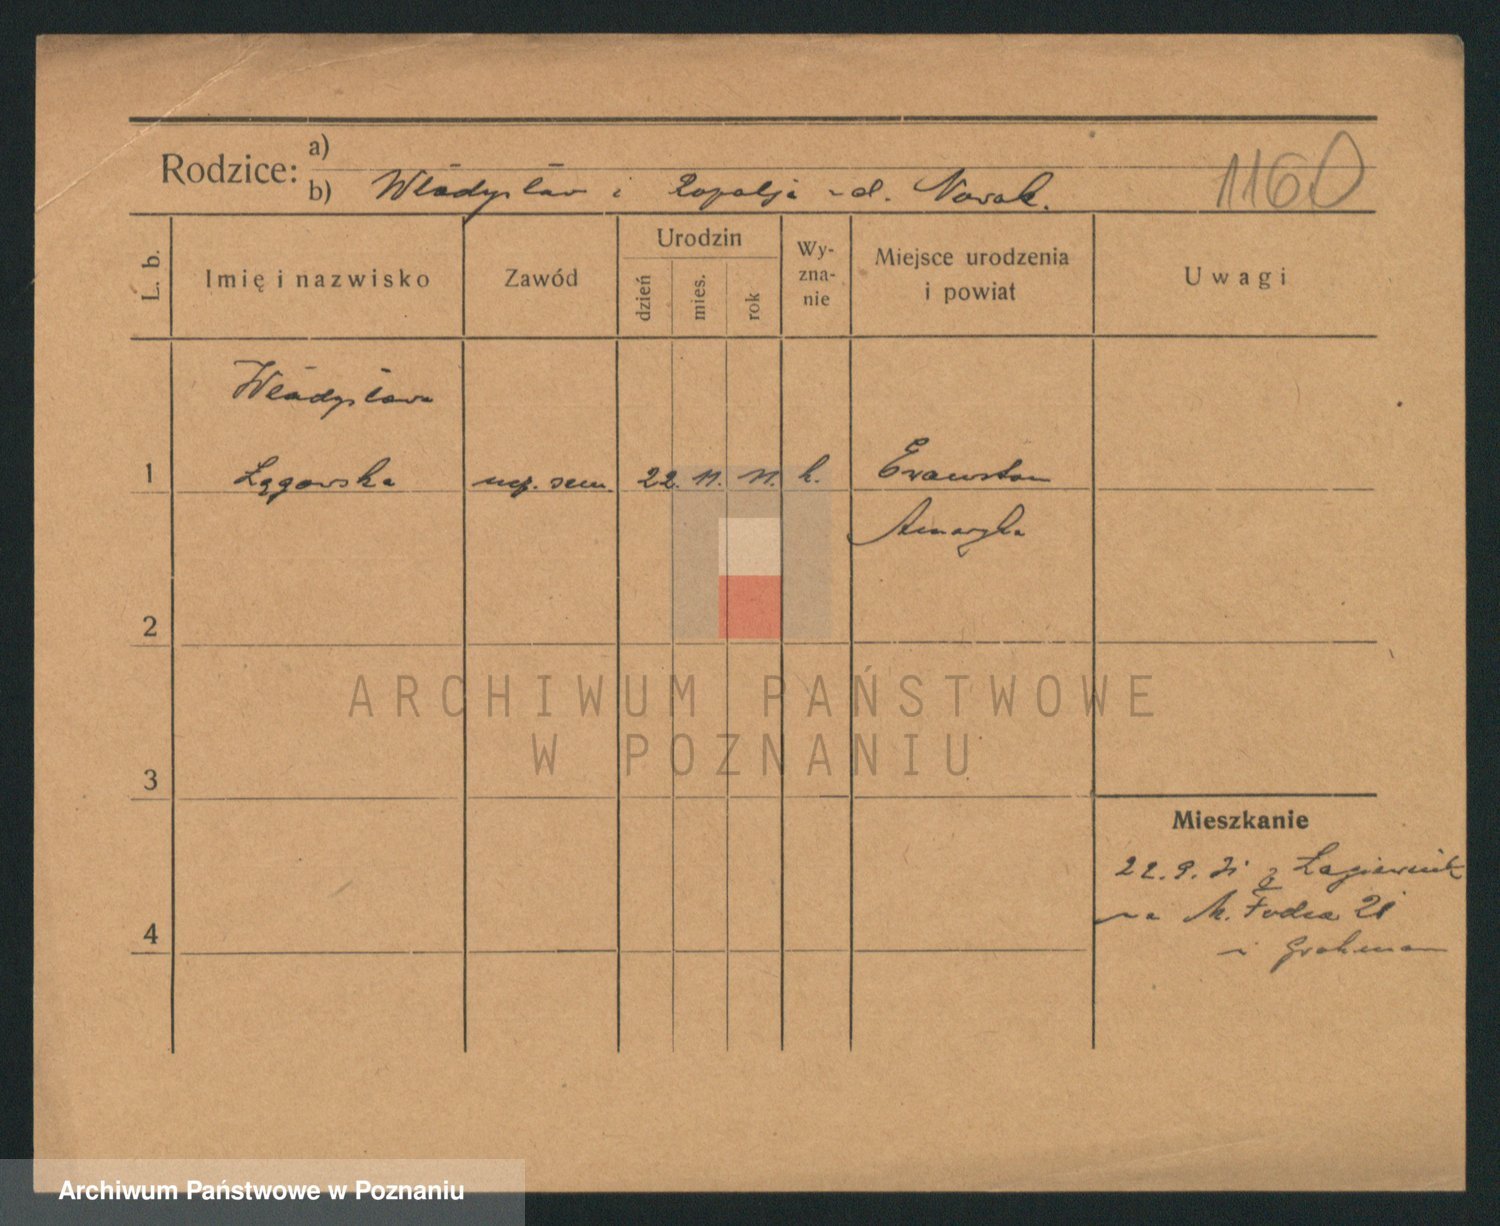 Rodzice: a)
b) Władysław i Rozalja z d. Nowak.
1160
L. b.
Imię i nazwisko
Zawód
Urodzin
dzień
mies.
rok
Wy-
zna-
nie
Miejsce urodzenia
i powiat
Uwagi
Władysława
1 Łagowska naucz. sem. 22. 11. 11. k. Evanston
Ameryka
2
ARCHIWUM PAŃSTWOWE
W POZNANIU
3
Mieszkanie
22. 9. 31 z Łagiewnik
na M. Focha 21
4
Archiwum Państwowe w Poznaniu